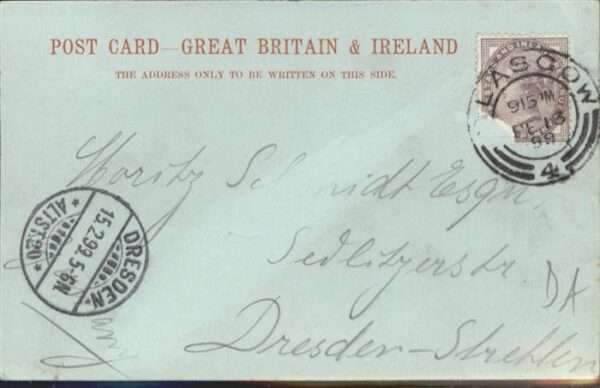 POST CARD—GREAT BRITAIN & IRELAND
THE ADDRESS ONLY TO BE WRITTEN ON THIS SIDE.
GLASGOW
9 15 M
FE 13
99
4
Moritz Schmidt Esqu.
Sedlitzerstr.
Dresden-Strehlen
DA
DRESDEN-
*ALTST.20*
15.2.99.5-6N